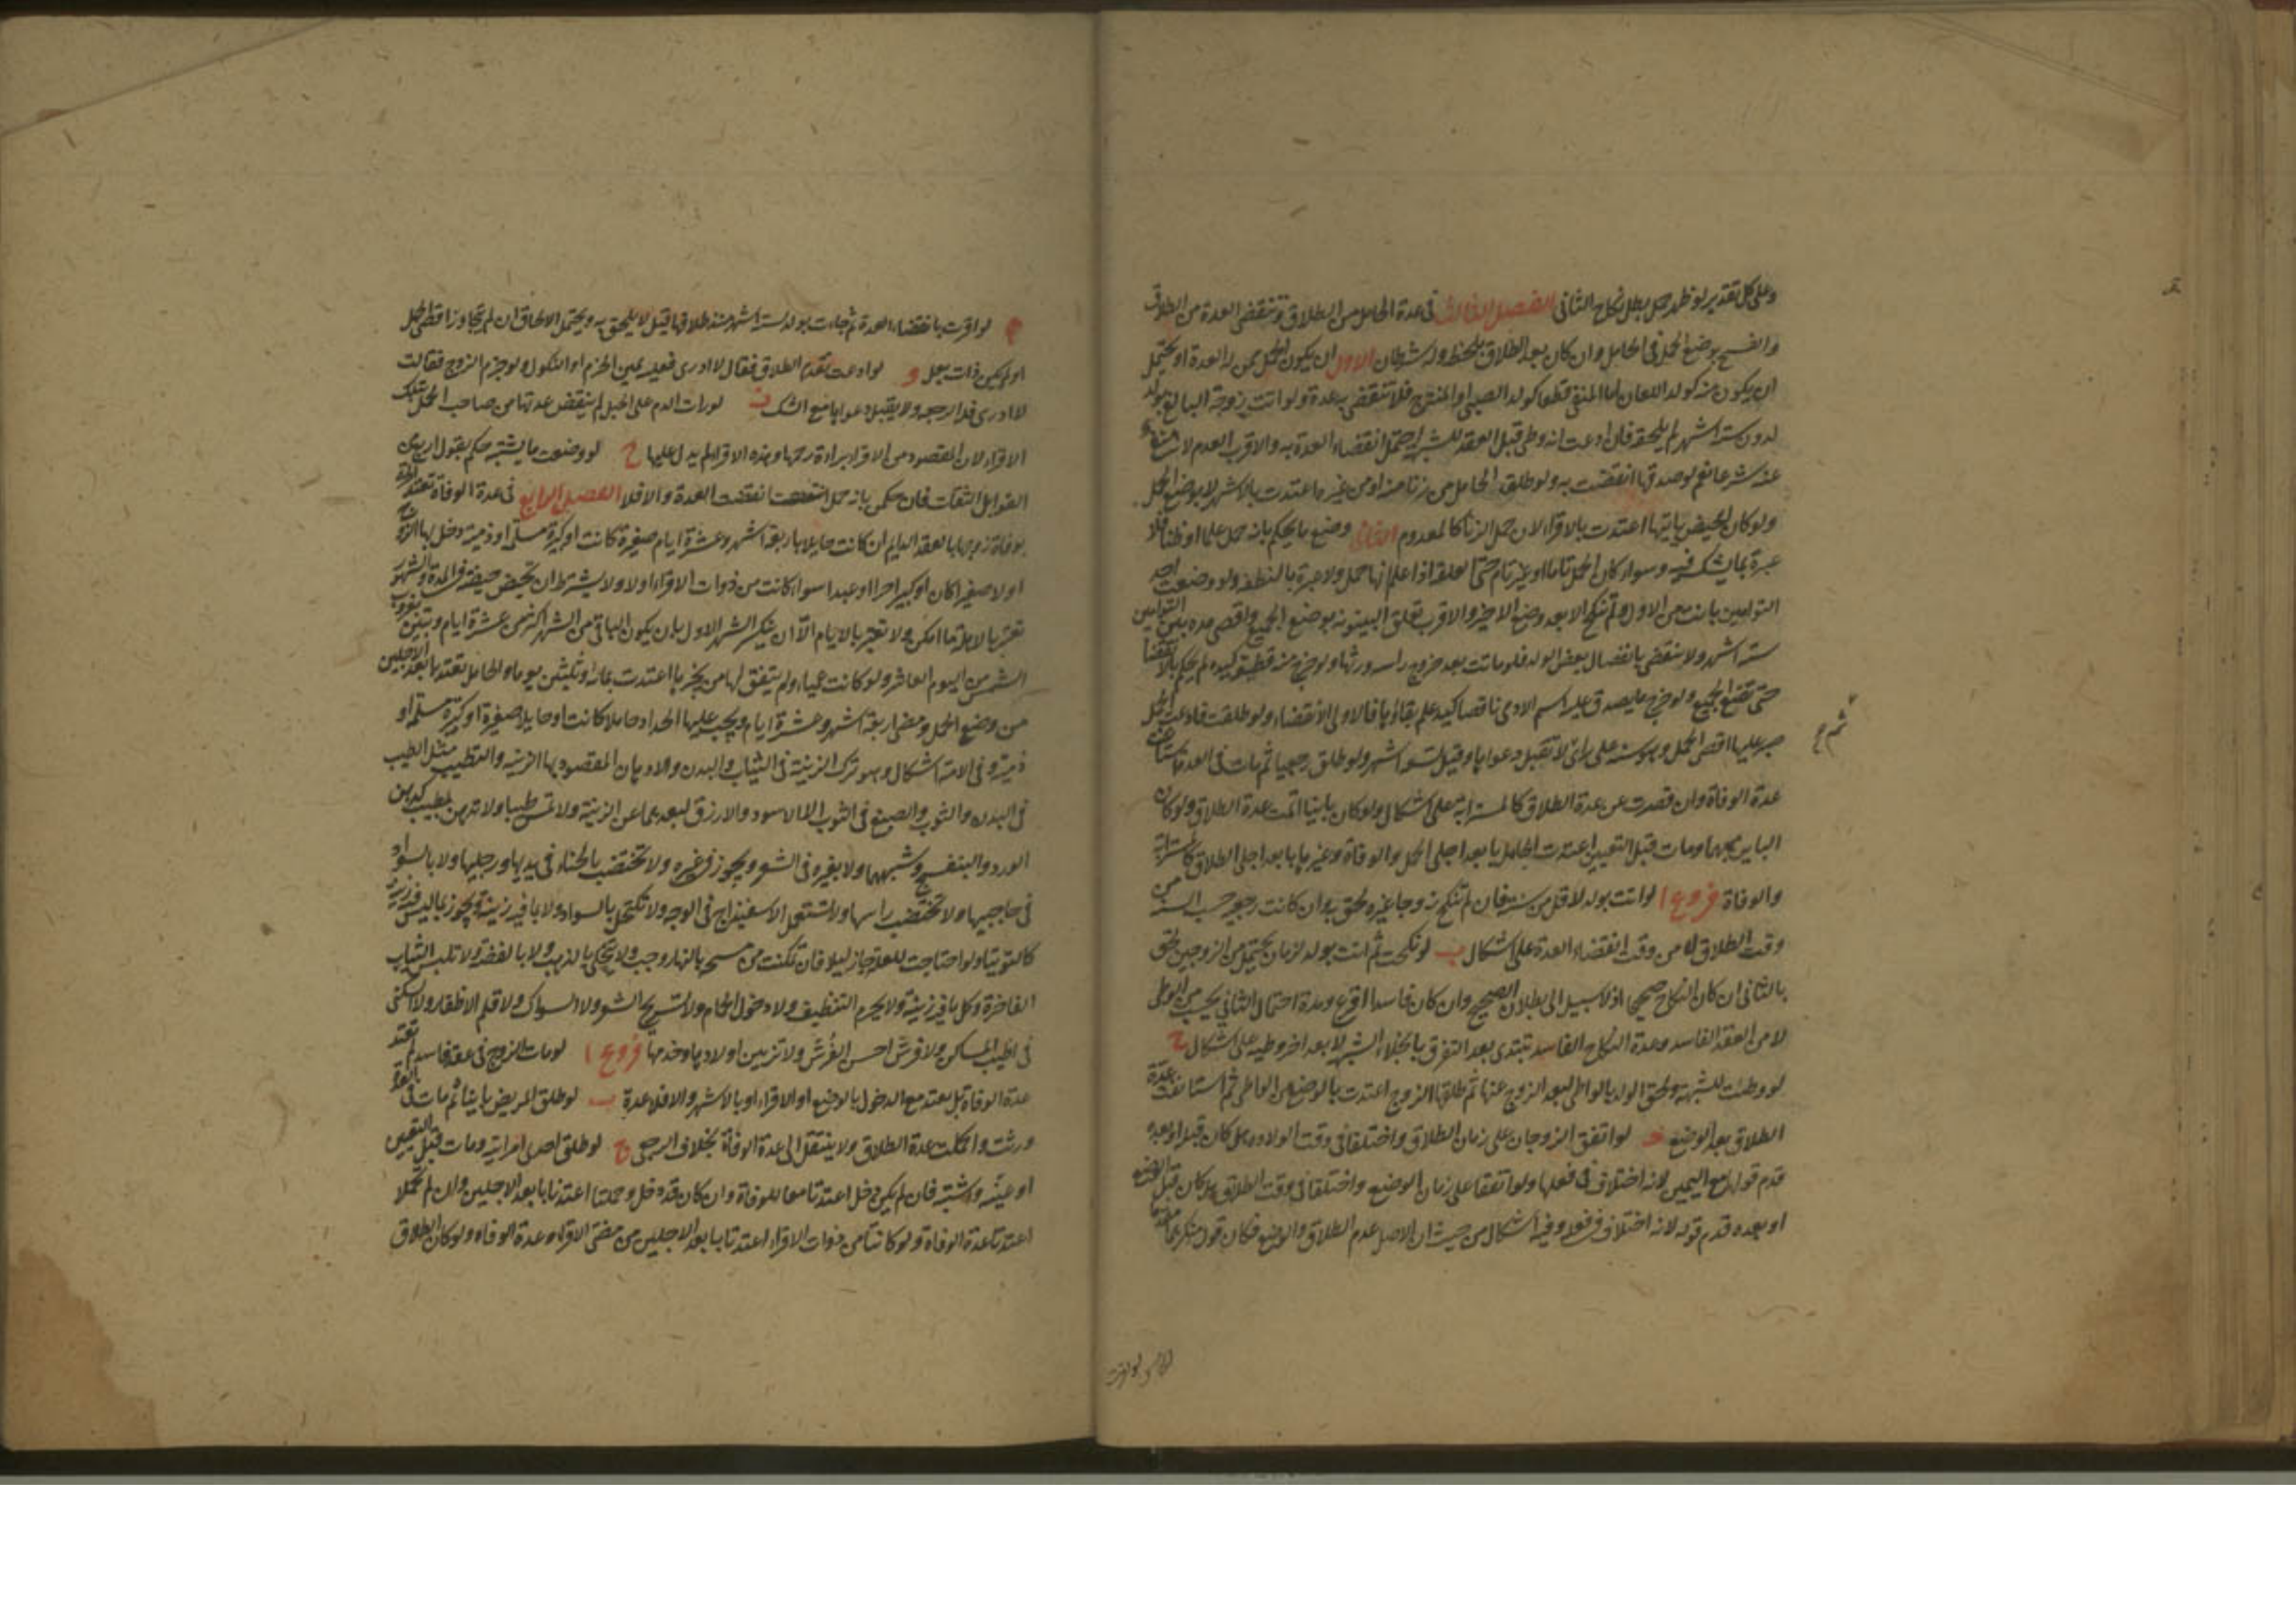 وعلى كل تقدير لو ظهر حمل بطل نكاح الثاني الفصل الثالث في عدة الحامل من الطلاق وتنقضي العدة من الطلاق
والفسخ بوضع الحمل في الحامل وان كان بعد الطلاق بلحظة وله شرطان الاول ان يكون الحمل ممن له العدة او يحتمل
ان يكون منه كولد اللعان اما المنفي قطعا كولد الصبي او المنتزح فلا تنقضي به عدة ولو اتت زوجة البالغ بولد
لدون ستة اشهر لم يلحقه فان ادعت انه وطي قبل العقد للشبهة احتمل انقضاء العدة به والاقرب العدم لانتفائه
عنه شرعا نعم لو صدقها انقضت به ولو طلق الحامل من زنا منه او من غيره اعتدت بالاشهر لا بوضع الحمل
ولو كان الحيض ياتيها اعتدت بالاقراء لان حمل الزنا كالمعدوم الثاني وضع ما يحكم بانه حمل علما او ظنا فلا
عبرة بما يشك فيه وسواء كان الحمل تاما او غير تام حتى العلقة اذا علم انها حمل ولا عبرة بالنطفة ولو وضعت احد
التوامين بانت من الاول ولم تنكح الا بعد وضع الاخر والاقرب تعلق البينونة بوضع الجميع واقصى مدة بين التوامين
ستة اشهر ولا تنقضي بانفصال بعض الولد فلو ماتت بعد خروج راسه ورثها ولو خرج منه قطعة كيده لم يحكم بالانقضاء
حتى تضع الجميع ولو خرج ما يصدق عليه اسم الادمي ناقصا كيد علم بقاؤها فالاولى الانقضاء ولو طلقت فادعت الحمل
صبر عليها اقصى الحمل وهو سنة على راي ثم لا تقبل دعواها وقيل تسعة اشهر ولو طلق رجعيا ثم مات في العدة استانفت
عدة الوفاة وان قصرت عن عدة الطلاق كالمسترابة على اشكال ولو كان باينا اتمت عدة الطلاق ولو كان
الباين مبهما ومات قبل التعيين اعتدت الحامل بابعد اجلي الحمل والوفاة وغيرها بابعد اجلي الطلاق كالمسترابة
والوفاة فروع ا لو اتت بولد لاقل من سنة فان لم تنكح زوجا غيره لحق به وان كانت رجعية حسب السنة من
وقت الطلاق لا من وقت انقضاء العدة على اشكال ب لو نكحت ثم اتت بولد لزمان يحتمل من الزوجين لحق
بالثاني ان كان النكاح صحيحا اذ لا سبيل الى بطلان الصحيح وان كان فاسدا اقرع ومدة احتمال الثاني يحسب من الوطي
لا من العقد الفاسد وعدة النكاح الفاسد تبتدي بعد التفرق بانجلاء الشبهة لا بعد اخر وطيه على اشكال ج
لو وطئت للشبهة ولحق الولد بالواطي لبعد الزوج عنها ثم طلقها الزوج اعتدت بالوضع من الواطي ثم استانفت عدة
الطلاق بعد الوضع د لو اتفق الزوجان على زمان الطلاق واختلفا في وقت الولادة هل كان قبله او بعده
قدم قولها مع اليمين لانه اختلاف في فعلها ولو اتفقا على زمان الوضع واختلفا في وقت الطلاق هل كان قبل الوضع
او بعده قدم قوله لانه اختلاف في فعله وفيه اشكال من حيث ان الاصل عدم الطلاق والوضع فكان قول منكرهما مقدما
ه لو اقرت بانقضاء العدة ثم جاءت بولد لستة اشهر منذ طلاقها قيل لا يلحق به ويحتمل الالحاق ان لم تتجاوز اقصى الحمل
او لم تكن ذات بعل و لو ادعت تقدم الطلاق فقال لا ادري فعليه يمين الجزم او النكول ولو جزم الزوج فقالت
لا ادري فله الرجعة ولا يقبل دعواها مع الشك ز لو رات الدم على الحبل لم ينقض عدتها من صاحب الحمل بتلك
الاقراء لان المقصود من الاقراء براءة رحمها وهذه الاقراء لم يدل عليها ح لو وضعت ما يشتبه حكم بقول اربع من
القوابل الثقات فان حكمن بانه حمل انقضت العدة والا فلا الفصل الرابع في عدة الوفاة تعتد الحرة
بوفاة زوجها بالعقد الدايم ان كانت حايلا باربعة اشهر وعشرة ايام صغيرة كانت او كبيرة مسلمة او ذمية دخل بها الزوج
او لا صغيرا كان او كبيرا حرا او عبدا سواء كانت من ذوات الاقراء او لا ولا يشترط ان تحيض حيضة في المدة والشهور
تعتبر بالاهلة ما امكن ولا تعتبر بالايام الا ان ينكسر الشهر الاول بان يكون الباقي من الشهر اكثر من عشرة ايام وتبين بغروب
الشمس من اليوم العاشر ولو كانت عمياء ولم يتفق لها من يخبرها اعتدت بماية وثلثين يوما والحامل تعتد بابعد الاجلين
من وضع الحمل ومضي اربعة اشهر وعشرة ايام ويجب عليها الحداد حاملا كانت او حايلا صغيرة او كبيرة مسلمة او
ذمية وفي الامة اشكال وهو ترك الزينة في الثياب والبدن والادهان المقصود بها الزينة والتطيب مثل الطيب
في البدن والثوب والصبغ في الثوب الا الاسود والازرق لبعدهما عن الزينة ولا تمس طيبا ولا تدهن بطيب كدهن
الورد والبنفسج وشبههما ولا بغيره في الشعر ويجوز في غيره ولا تختضب بالحناء في يديها ورجليها ولا بالسواد
في حاجبيها ولا تختضب راسها ولا تستعمل الاسفيذاج في الوجه ولا تكتحل بالسواد ولا بما فيه زينة ويجوز بما ليس فيه زينة
كالتوتيا ولو احتاجت للعلة جاز ليلا فان تمكنت من مسحه بالنهار وجب ولا تتحلى بالذهب ولا بالفضة ولا تلبس الثياب
الفاخرة وكل ما فيه زينة ولا يحرم التنظيف ولا دخول الحمام ولا تسريح الشعر ولا السواك ولا قلم الاظفار ولا السكنى
في اطيب المساكن ولا فرش احسن الفرش ولا تزيين اولادها وخدمها فروع ا لو مات الزوج في عقد فاسد لم تعتد
عدة الوفاة بل تعتد مع الدخول بالوضع او الاقراء او بالاشهر والا فلا عدة ب لو طلق المريض باينا ثم مات في العدة
ورثت واكملت عدة الطلاق ولا ينتقل الى عدة الوفاة بخلاف الرجعي ج لو طلق احدى امراتيه ومات قبل التعيين
او عينه واشتبه فان لم يكن دخل اعتدتا معا للوفاة وان كان قد دخل وحملتا اعتدتا بابعد الاجلين وان لم تحملا
اعتدتا عدة الوفاة ولو كانتا من ذوات الاقراء اعتدتا بابعد الاجلين من مضي الاقراء وعدة الوفاة ولو كان الطلاق